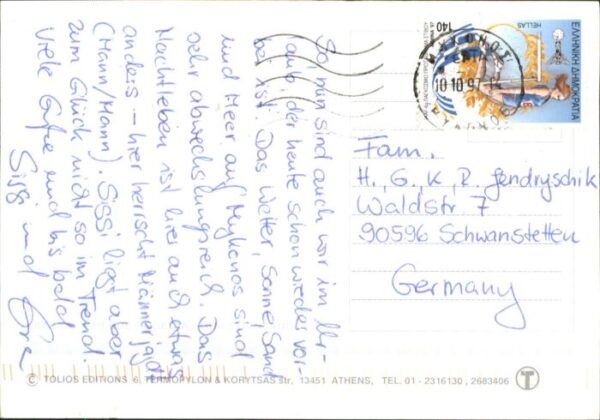 So, nun sind auch wir im Ur-
laub, der heute schon wieder vor-
bei ist. Das Wetter, Sonne, Sand
und Meer auf Mykonos sind
sehr abwechslungsreich. Das
Nachtleben ist hier auch etwas
anders – hier herrscht Männerjagd
(Mann/Mann). Sissi liegt aber
zum Glück nicht so im Trend.
Viele Grüße und bis bald
Sissi und
Fam.
H., G., K., R. Jendryschik
Waldstr. 7
90596 Schwanstetten
Germany
ΕΛΛΗΝΙΚΗ ΔΗΜΟΚΡΑΤΙΑ
HELLAS
140
10 10 97
© TOLIOS EDITIONS 6, TERMOPYLON & KORYTSAS str, 13451 ATHENS, TEL. 01 - 2316130, 2683406
T